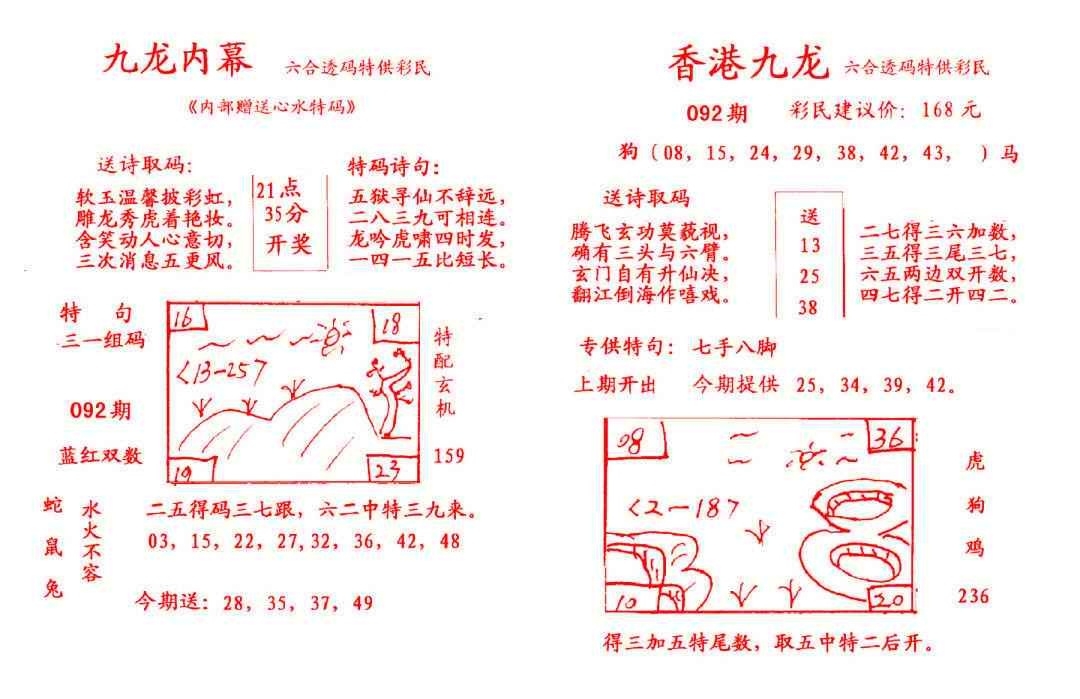 九龙内幕 六合透码特供彩民
《内部赠送心水特码》
送诗取码：
软玉温馨披彩虹，
雕龙秀虎着艳妆。
含笑动人心意切，
三次消息五更风。
21点
35分
开奖
特码诗句：
五狱寻仙不辞远，
二八三九可相连。
龙吟虎啸四时发，
一四一五比短长。
特 句
三一组码
092期
蓝红双数
16
18
<13-257
19
23
特配玄机
159
蛇鼠兔
水火不容
二五得码三七跟，六二中特三九来。
03，15，22，27,32，36，42，48
今期送：28，35，37，49
香港九龙 六合透码特供彩民
092期 彩民建议价：168元
狗（08，15，24，29，38，42，43， ）马
送诗取码
腾飞玄功莫藐视，
确有三头与六臂。
玄门自有升仙决，
翻江倒海作嘻戏。
送
13
25
38
二七得三六加数，
三五得三尾三七，
六五两边双开数，
四七得二开四二。
专供特句：七手八脚
上期开出 今期提供 25，34，39，42。
08
36
<2-187
10
20
虎
狗
鸡
236
得三加五特尾数，取五中特二后开。